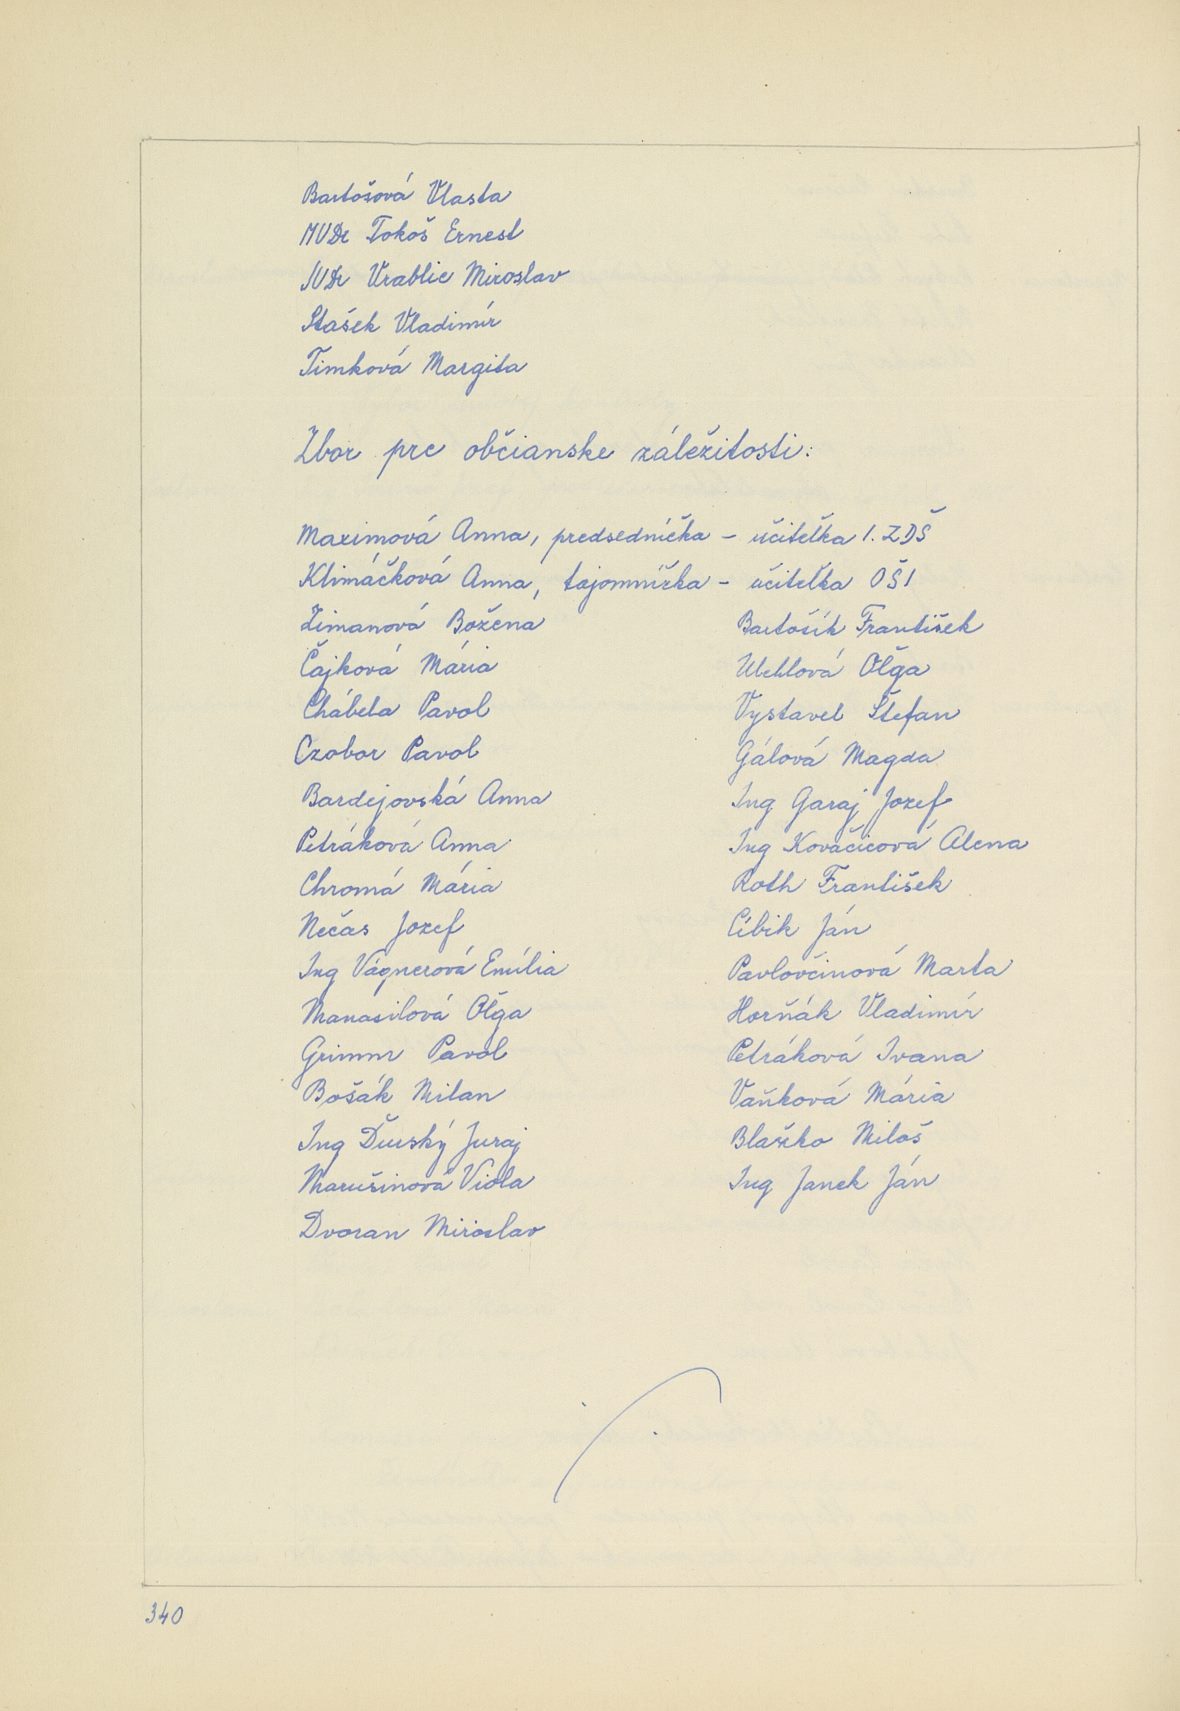 Bartošová Vlasta
MVDr Tokoš Ernest
JUDr Vrablic Miroslav
Stašek Vladimír
Timková Margita
Zbor pre občianske záležitosti:
Maximová Anna, predsedníčka – učiteľka 1. ZDŠ
Klimáčková Anna, tajomníčka – učiteľka OŠI
Zimanová Božena
Čajková Mária
Chábela Pavol
Czobor Pavol
Bardejovská Anna
Petráková Anna
Chromá Mária
Nečas Jozef
Ing Vágnerová Emília
Manasilová Oľga
Grimm Pavol
Bošák Milan
Ing Ďurský Juraj
Marušinová Viola
Dvoran Miroslav
Bartošík František
Uhlová Oľga
Vystavel Štefan
Gálová Magda
Ing Garaj Jozef
Ing Kovačicová Alena
Roth František
Cibik Ján
Pavlovčinová Marta
Horňák Vladimír
Petráková Ivana
Vaňková Mária
Blaško Miloš
Ing Janek Ján
340